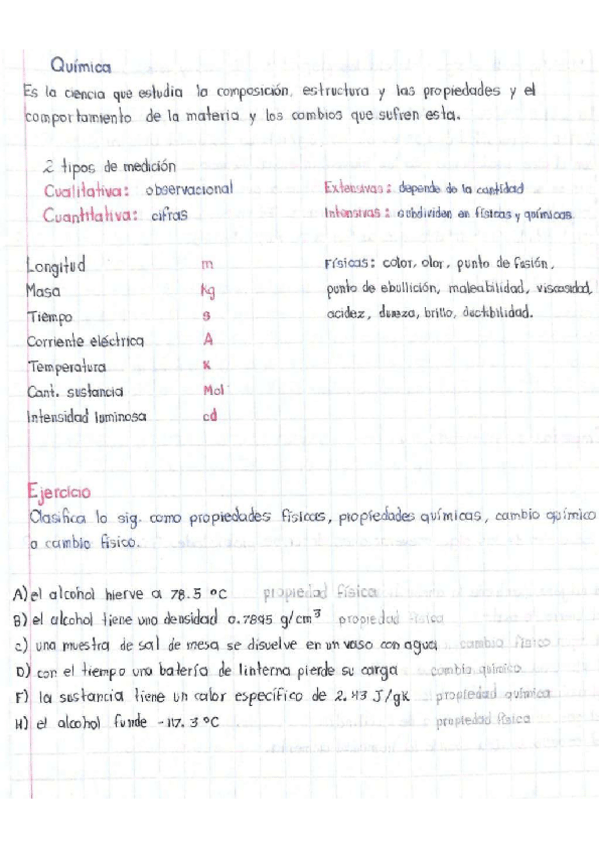 Química
Es la ciencia que estudia la composición, estructura y las propiedades y el
comportamiento de la materia y los cambios que sufren esta.
2 tipos de medición
Cualitativa: observacional
Cuantitativa: cifras
Extensivas: depende de la cantidad
Intensivas: subdividen en físicas y químicas.
Longitud m
Masa kg
Tiempo s
Corriente eléctrica A
Temperatura K
Cant. sustancia Mol
Intensidad luminosa cd
Físicas: color, olor, punto de fusión,
punto de ebullición, maleabilidad, viscosidad,
acidez, dureza, brillo, ductibilidad.
Ejercicio
Clasifica lo sig. como propiedades físicas, propiedades químicas, cambio químico
o cambio físico.
A) el alcohol hierve a 78.5 °C propiedad física
B) el alcohol tiene una densidad 0.7895 g/cm³ propiedad física
c) una muestra de sal de mesa se disuelve en un vaso con agua cambio físico
D) con el tiempo una batería de linterna pierde su carga cambio químico
F) la sustancia tiene un calor específico de 2.43 J/gK propiedad química
H) el alcohol funde -117.3 °C propiedad física